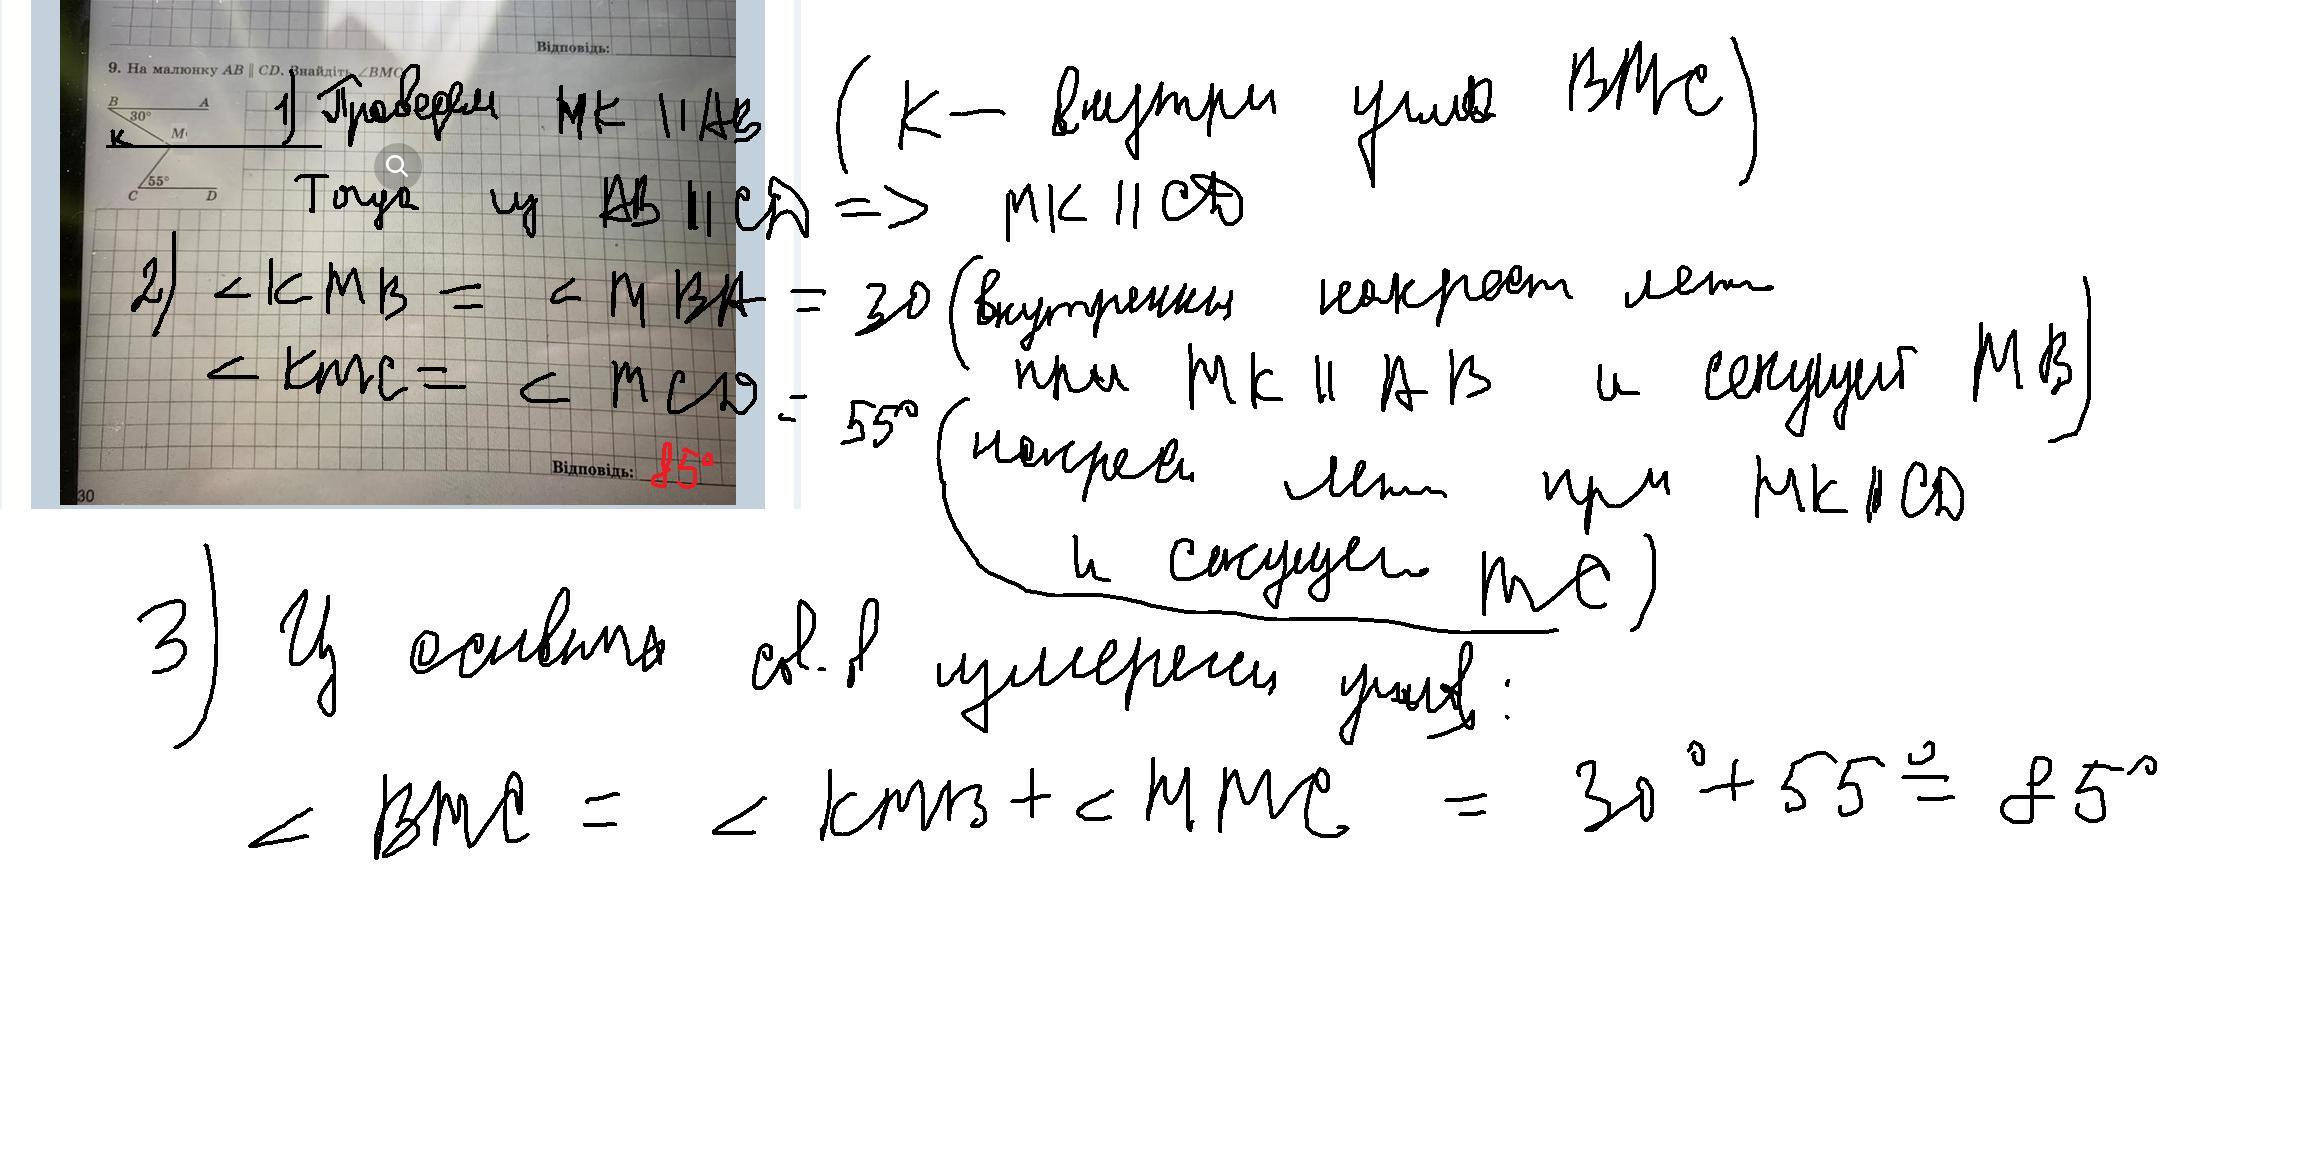 Відповідь:
9. На малюнку AB || CD. Знайдіть ∠BMC
B A
30°
K M
55°
C D
1) Проведем MK || AB (K — внутри угла BMC)
Тогда из AB || CD => MK || CD
2) <KMB = <MBA = 30 (внутренни накрест леж
при MK || AB и секущей MB)
<KMC = <MCD = 55° (накрест леж при MK || CD
и секущей MC)
Відповідь: 85°
30
3) Из основного св-в измерени углов:
<BMC = <KMB + <MMC = 30° + 55° = 85°